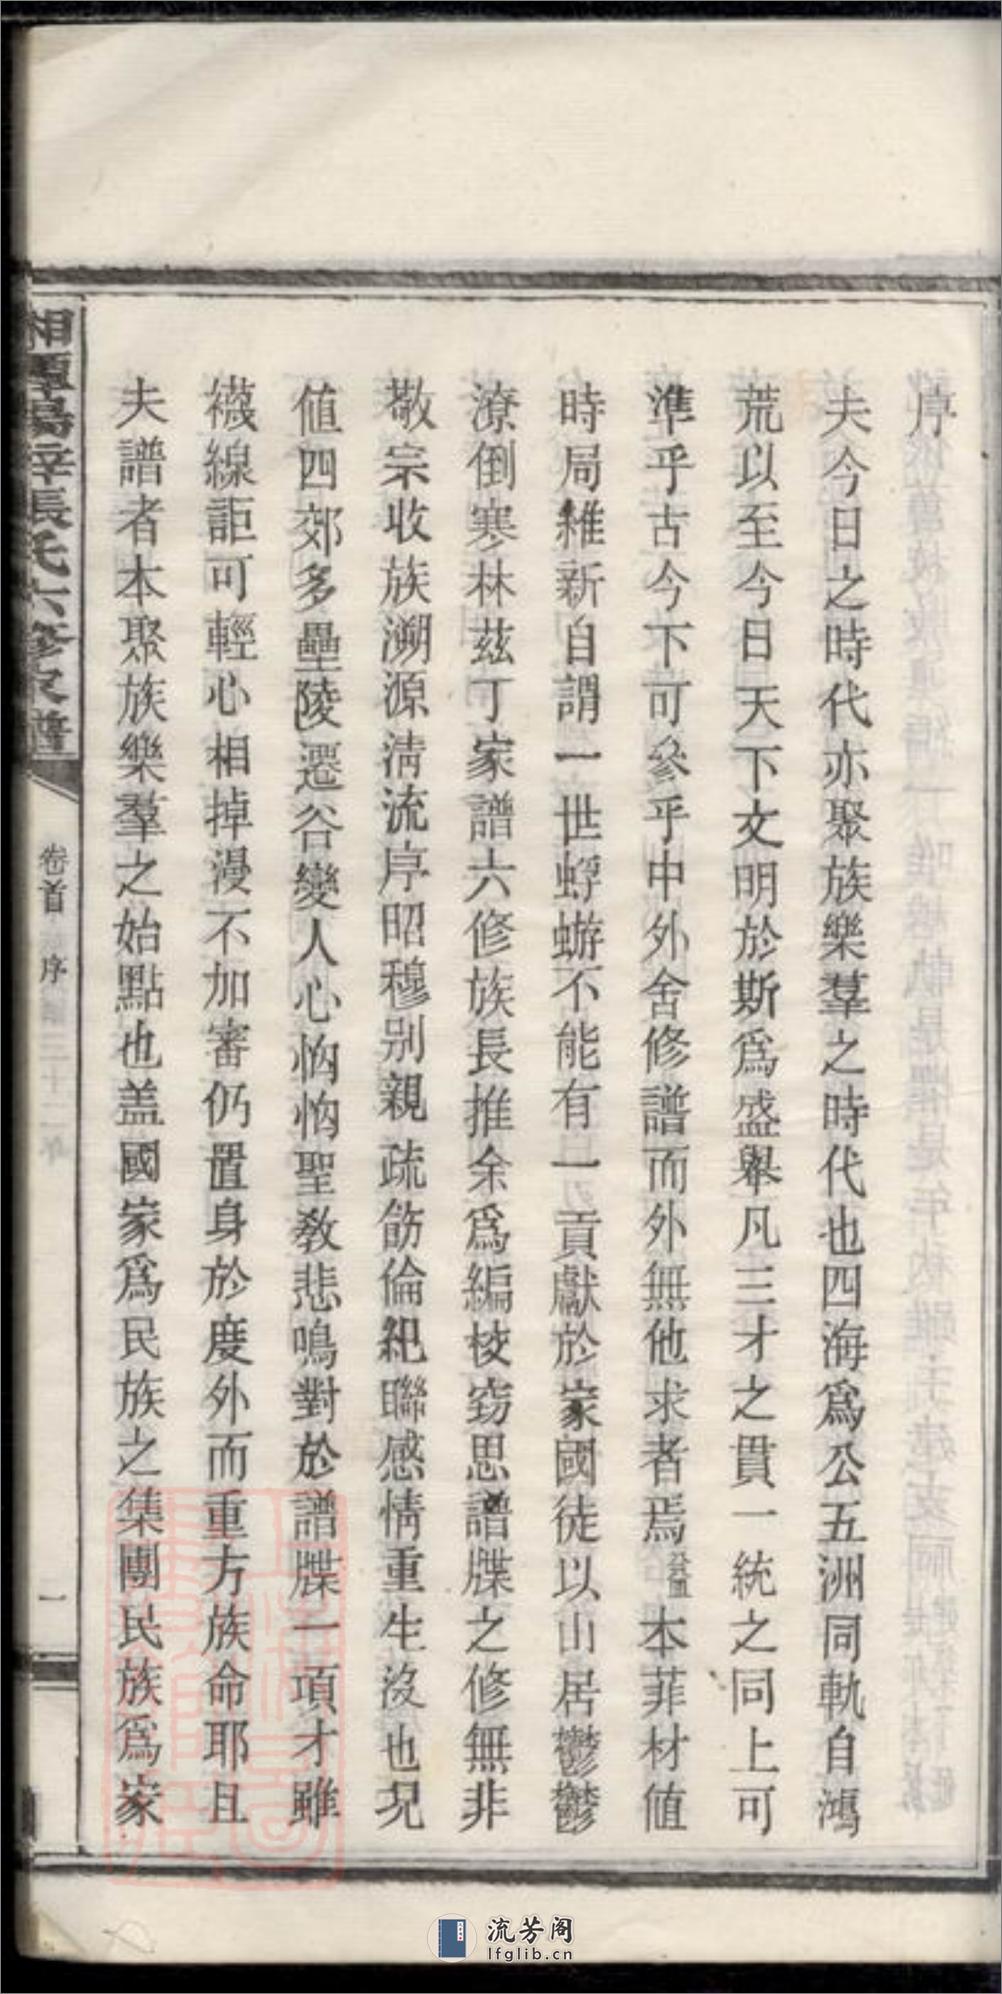 序
夫今日之時代亦聚族樂羣之時代也四海爲公五洲同軌自鴻
荒以至今日天下文明於斯爲盛舉凡三才之貫一統之同上可
準乎古今下可參乎中外舍修譜而外無他求者焉益本菲材值
時局維新自謂一世蜉蝣不能有一貢獻於家國徒以山居鬱鬱
潦倒寒林茲丁家譜六修族長推余爲編校竊思譜牒之修無非
敬宗收族溯源淸流序昭穆别親疏飭倫紀聯感情重生沒也况
值四郊多壘陵遷谷變人心恟恟聖教悲鳴對於譜牒一項才雖
襪線詎可輕心相掉漫不加審仍置身於度外而重方族命耶且
夫譜者本聚族樂羣之始點也盖國家爲民族之集團民族爲家
相潭馬 張氏六修家譜
卷首
序
一
流芳阁
lfglib.cn